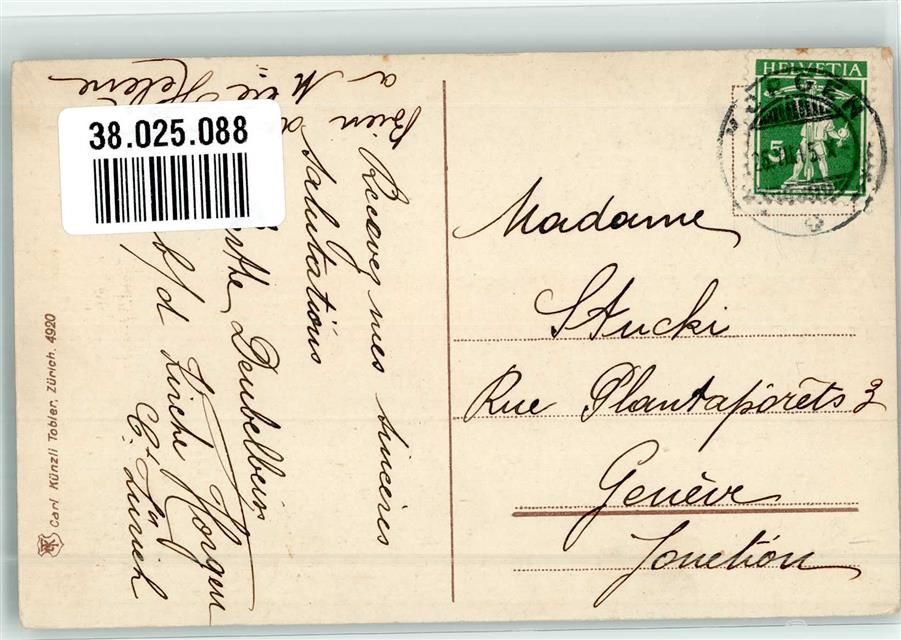 38.025.088
Recevez mes sincères
salutations
Deubelbeiss
b/d Kirche Horgen
Ct. Zurich
Bien
a Mlle Hélène
HELVETIA
5
Madame
Stucki
Rue Plantaporêts 3
Genève
Jonction
Carl Künzli Tobler, Zürich. 4920